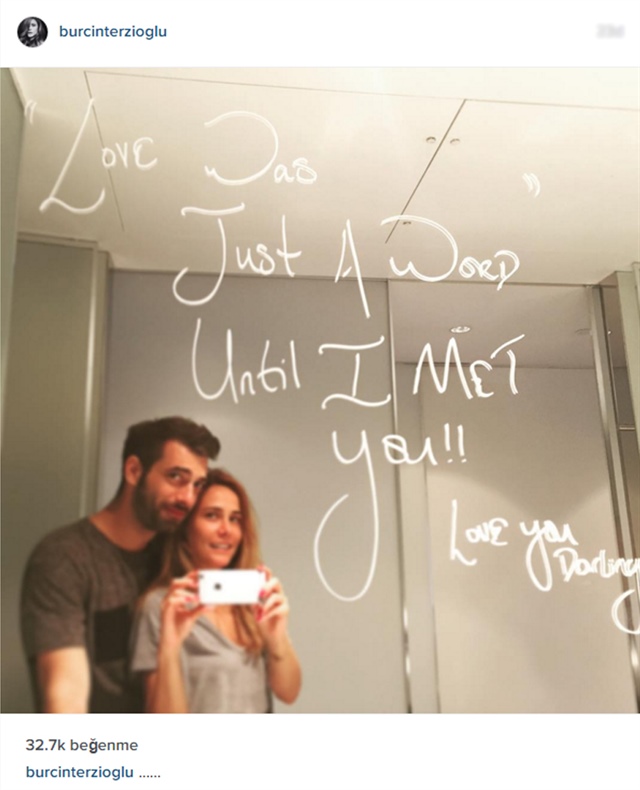 burcinterzioglu
" Love Was "
Just A Word
Until I Met
You!!
Love you
Darling
32.7k beğenme
burcinterzioglu ......